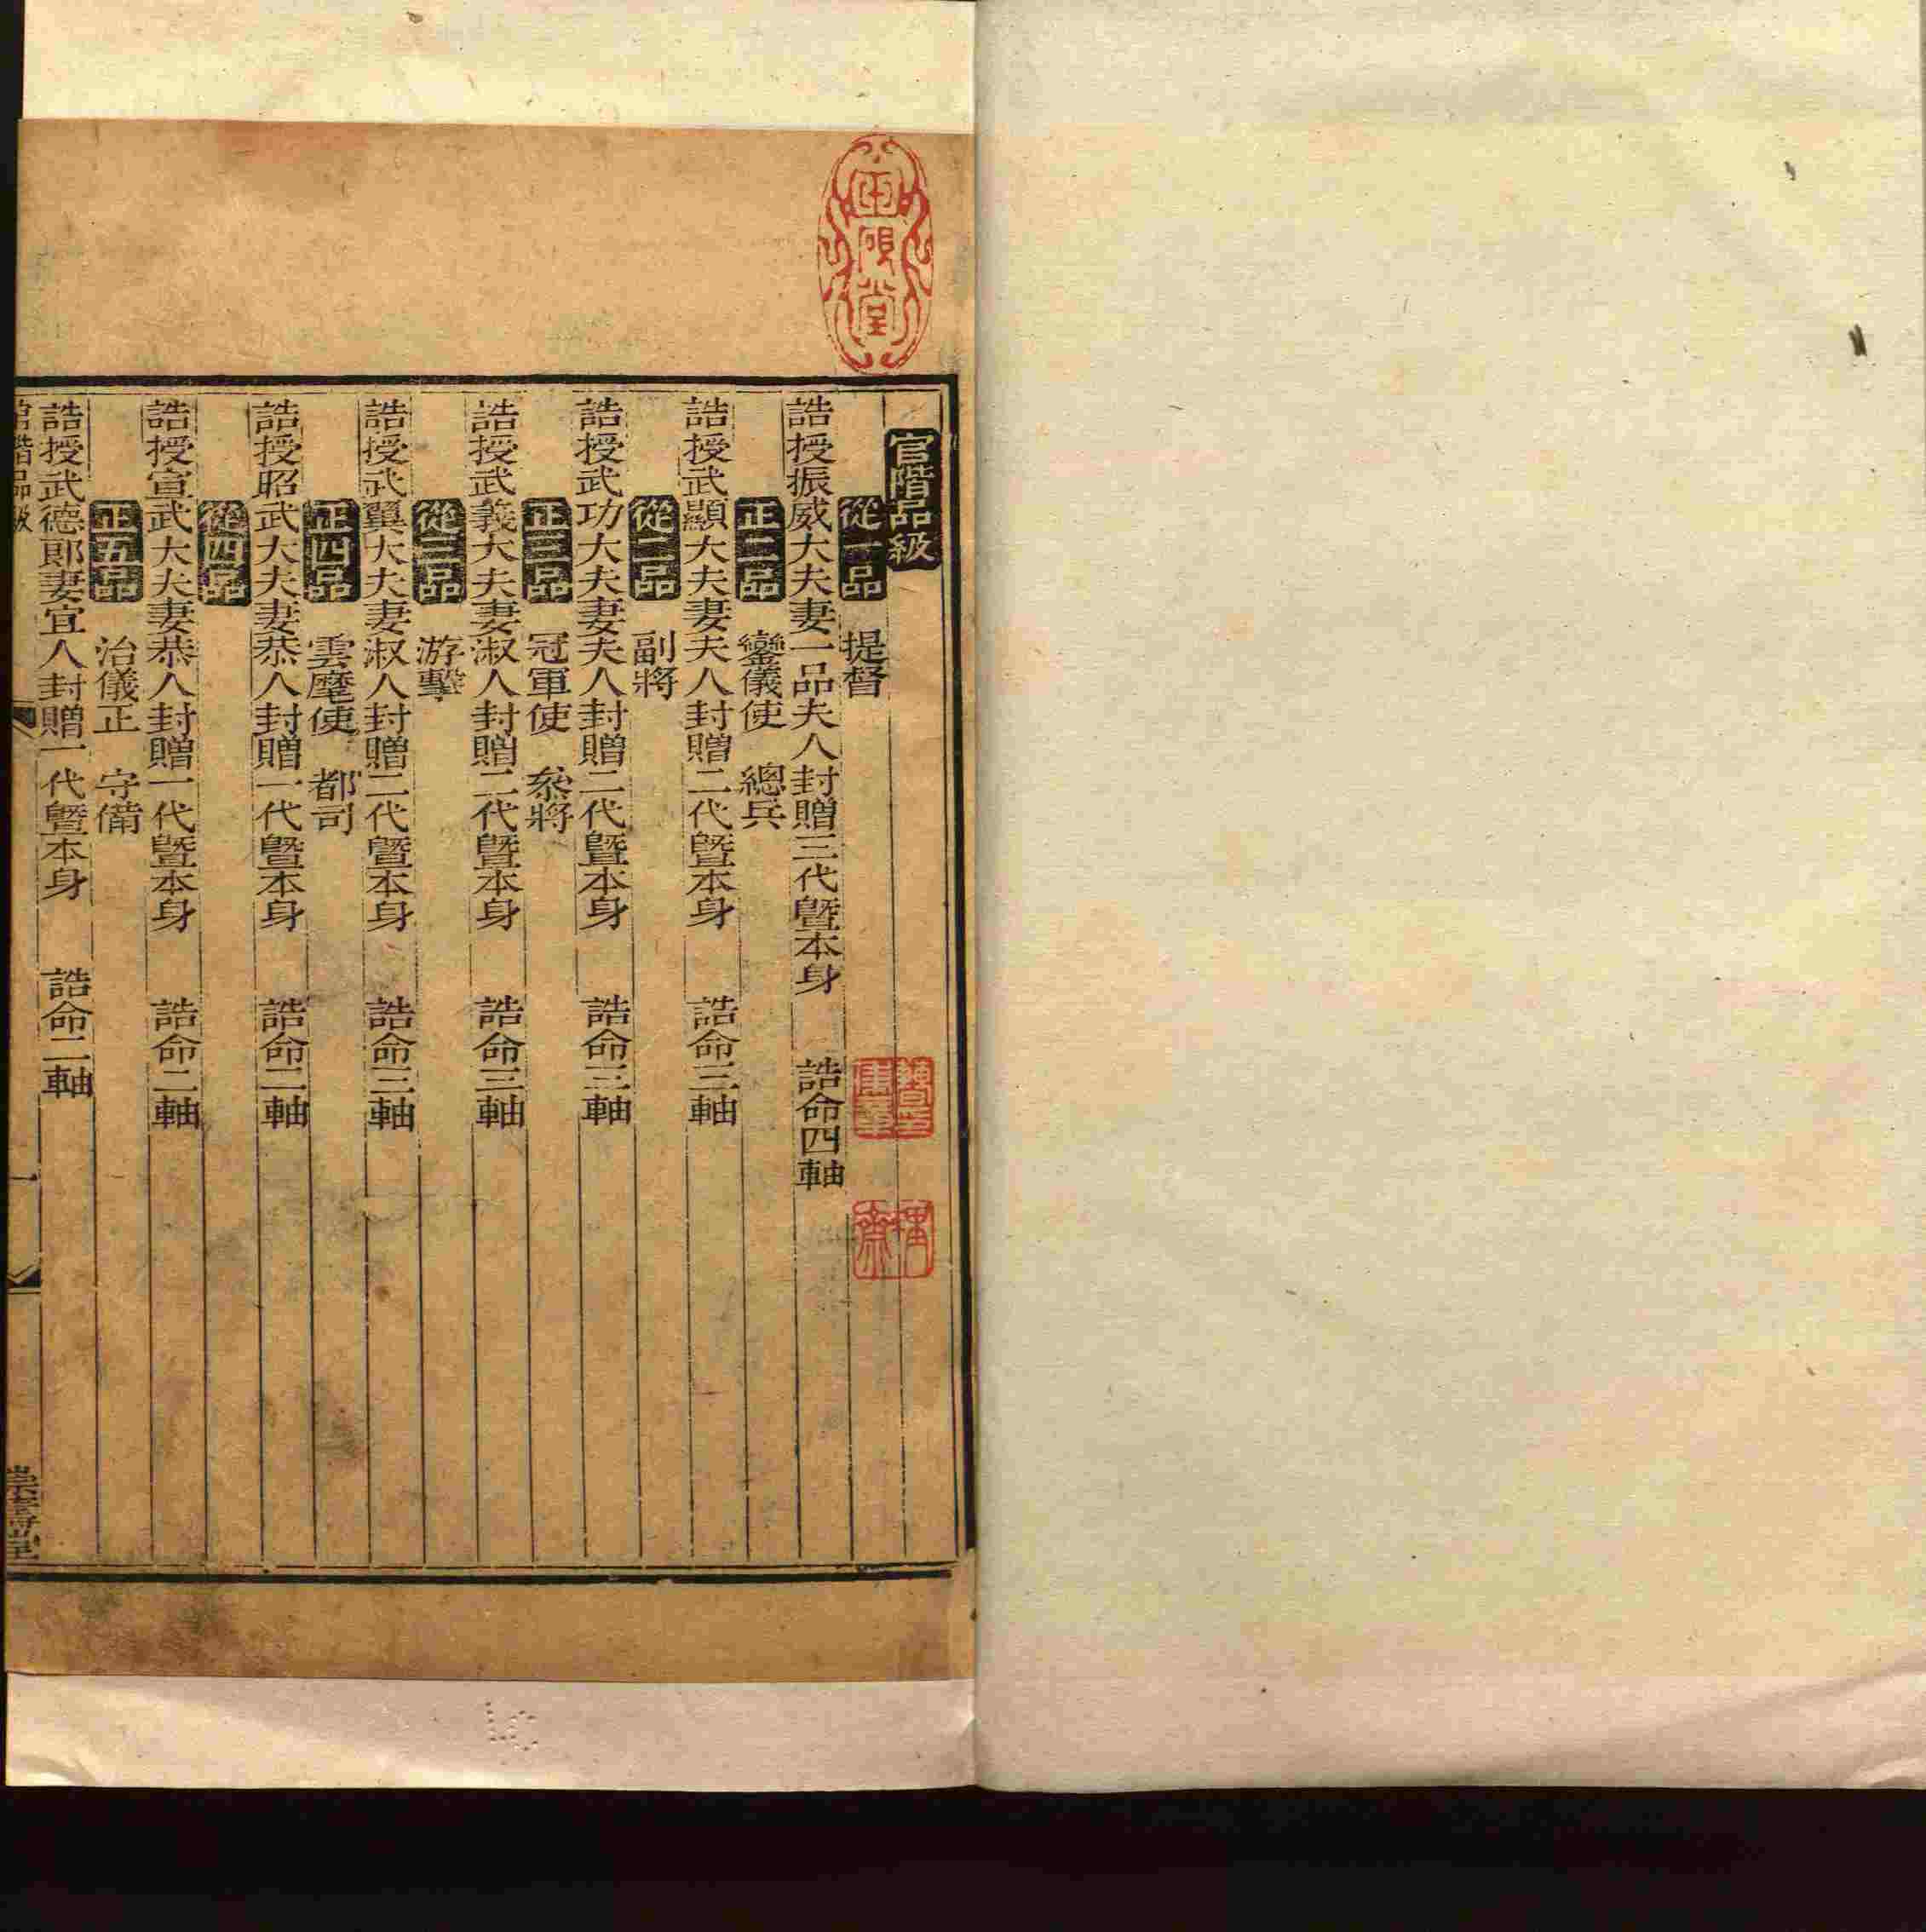 官階品級
從一品 提督
誥授振威大夫妻一品夫人封贈三代曁本身 誥命四軸
正二品 鑾儀使 總兵
誥授武顯大夫妻夫人封贈二代曁本身 誥命三軸
從二品 副將
誥授武功大夫妻夫人封贈二代曁本身 誥命三軸
正三品 冠軍使 叅將
誥授武義大夫妻淑人封贈二代曁本身 誥命三軸
從三品 游擊
誥授武翼大夫妻淑人封贈二代曁本身 誥命三軸
正四品 雲麾使 都司
誥授昭武大夫妻恭人封贈一代曁本身 誥命二軸
從四品
誥授宣武大夫妻恭人封贈一代曁本身 誥命二軸
正五品 治儀正 守備
誥授武德郎妻宜人封贈一代曁本身 誥命二軸
官階品級 一 崇壽堂